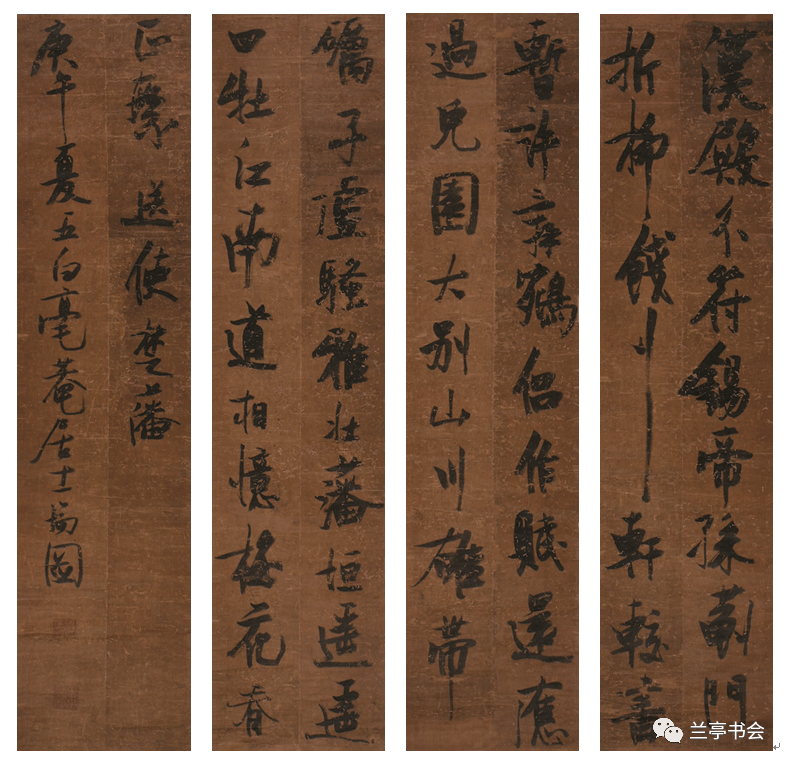 漢殿分符錫帝孫薊門
折柳餞行軒書
暫許辭鵷侶作賦還應
過兔園大別山川雄帶
礪子虛騷雅壯藩垣遙遙
四牡江南道相憶梅花春
正繁送使楚藩
庚午夏五白毫菴居士瑞圖
兰亭书会